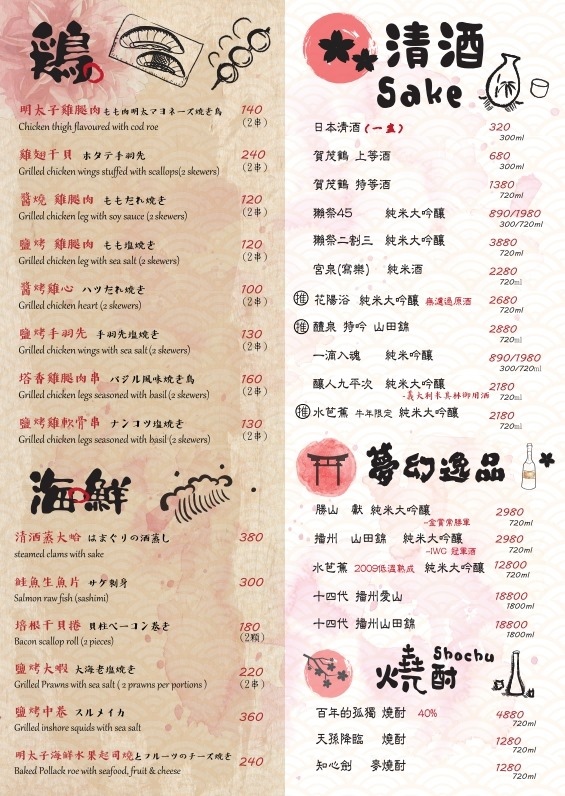 鶏の
明太子雞腿肉 もも肉明太マヨネーズ焼き鳥 140
Chicken thigh flavoured with cod roe (2串)
雞翅干貝 ホタテ手羽先 240
Grilled chicken wings stuffed with scallops(2 skewers) (2串)
醬燒 雞腿肉 ももだれ焼き 120
Grilled chicken leg with soy sauce (2 skewers) (2串)
鹽烤 雞腿肉 もも塩焼き 120
Grilled chicken leg with sea salt (2 skewers) (2串)
醬烤雞心 ハツだれ焼き 100
Grilled chicken heart (2 skewers) (2串)
鹽烤手羽先 手羽先塩焼き 130
Grilled chicken wings with sea salt (2 skewers) (2串)
塔香雞腿肉串 バジル風味焼き鳥 160
Grilled chicken legs seasoned with basil (2 skewers) (2串)
鹽烤雞軟骨串 ナンコツ塩焼き 130
Grilled chicken legs seasoned with basil (2 skewers) (2串)
海の鮮
清酒蒸大蛤 はまぐりの酒蒸し 380
steamed clams with sake
鮭魚生魚片 サケ刺身 300
Salmon raw fish (sashimi)
培根干貝捲 貝柱ベーコン巻き 180
Bacon scallop roll (2 pieces) (2顆)
鹽烤大蝦 大海老塩焼き 220
Grilled Prawns with sea salt ( 2 prawns per portions ) (2串)
鹽烤中卷 スルメイカ 360
Grilled inshore squids with sea salt
明太子海鮮水果起司燒 とフルーツのチーズ焼き 240
Baked Pollack roe with seafood, fruit & cheese
清酒
Sake
日本清酒(一壺) 320
300ml
賀茂鶴 上等酒 680
300ml
賀茂鶴 特等酒 1380
720ml
獺祭45 純米大吟釀 890/1980
300/720ml
獺祭二割三 純米大吟釀 3880
720ml
宮泉(寫樂) 純米酒 2280
720ml
推 花陽浴 純米大吟釀 無濾過原酒 2680
720ml
推 醴泉 特吟 山田錦 2880
720ml
一滴入魂 純米吟釀 890/1980
300/720ml
釀人九平次 純米大吟釀 2180
-義大利米其林御用酒 720ml
推 水芭蕉 牛年限定 純米吟釀 2180
720ml
夢幻逸品
勝山 獻 純米大吟釀 2980
-金賞常勝軍 720ml
播州 山田錦 純米大吟釀 2980
-IWC 冠軍酒 720ml
水芭蕉 2009低溫熟成 純米大吟釀 12800
720ml
十四代 播州愛山 18800
1800ml
十四代 播州山田錦 18800
1800ml
燒酎 Shochu
百年的孤獨 燒酎 40% 4880
720ml
天孫降臨 燒酎 1280
720ml
知心劍 麥燒酎 1280
720ml